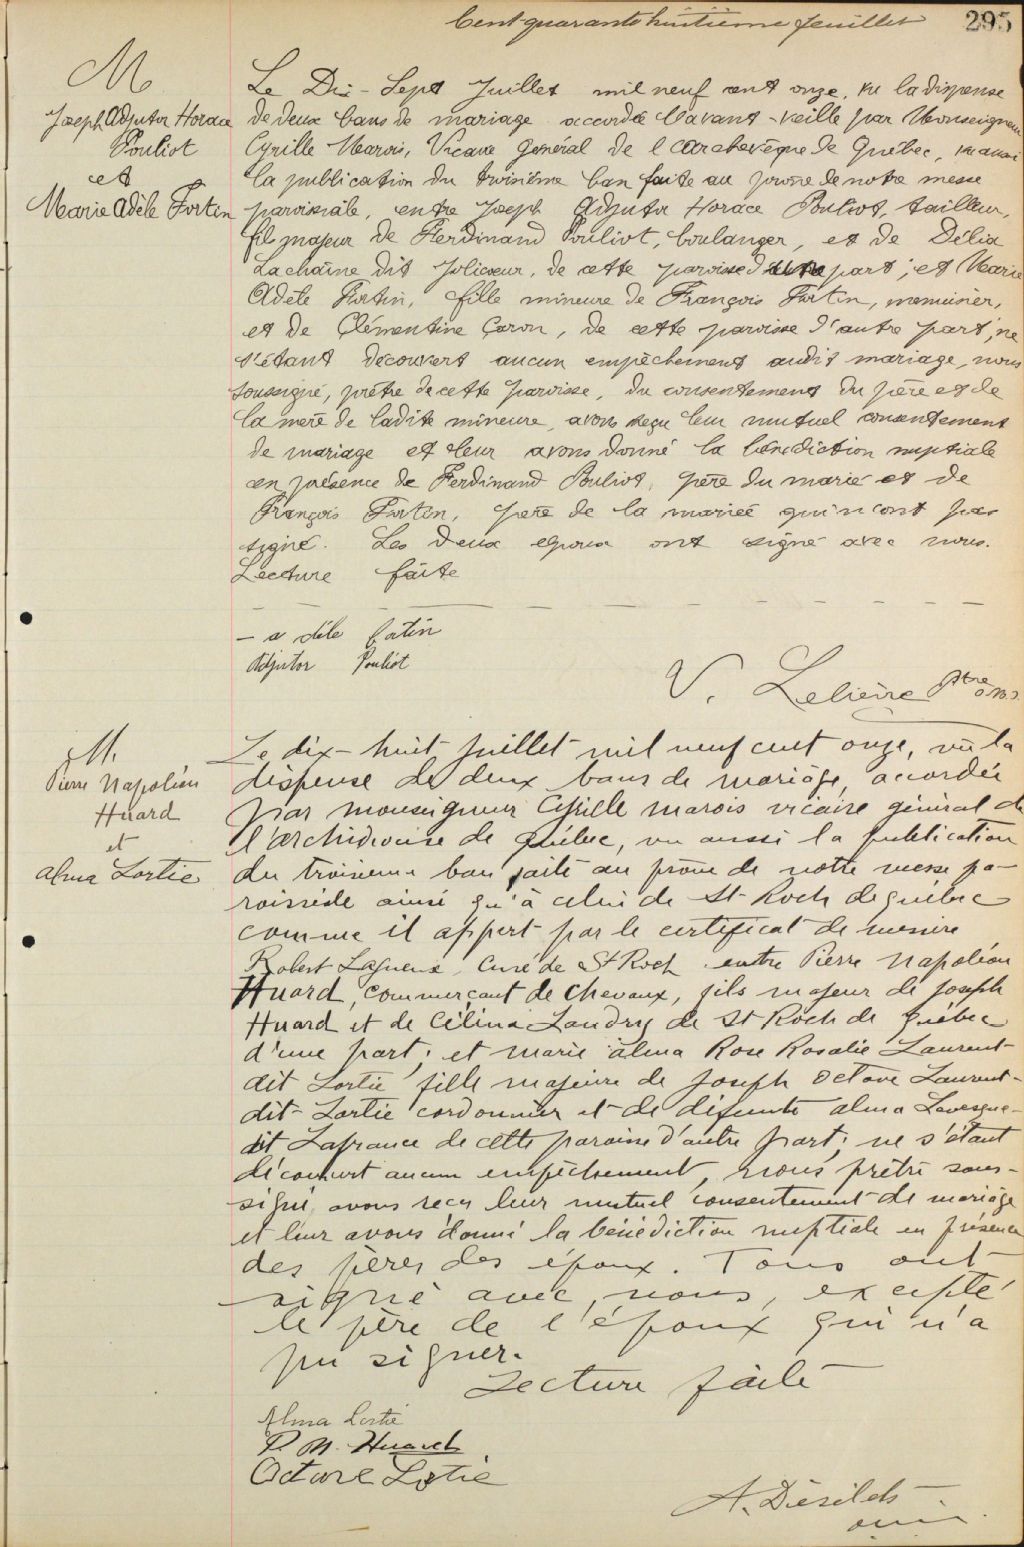 Cent quarante huitième feuillet
295
M
Joseph Adjutor Horace
Pouliot
et
Marie Adèle Fortin
Le Dix-Sept Juillet mil neuf cent onze, vu la dispense
de deux bans de mariage accordée l'avant-veille par Monseigneur
Cyrille Marois, Vicaire général de l'archevêque de Québec, vu aussi
la publication du troisième ban faite au prone de notre messe
paroissiale, entre Joseph Adjutor Horace Pouliot, tailleur,
fils majeur de Ferdinand Pouliot, boulanger, et de Délia
Lachaîne dit Jolicoeur, de cette paroisse d'une part; et Marie
Adèle Fortin, fille mineure de François Fortin, menuisier,
et de Clémentine Caron, de cette paroisse d'autre part; ne
s'étant découvert aucun empêchement audit mariage, nous
soussigné, prêtre de cette paroisse, du consentement du père et de
la mère de ladite mineure, avons reçu leur mutuel consentement
de mariage et leur avons donné la bénédiction nuptiale
en présence de Ferdinand Pouliot, père du marié et de
François Fortin, père de la mariée qui n'ont pas
signé. Les deux époux ont signé avec nous.
Lecture faite
– a dèle fortin
Adjutor Pouliot
V. Lelièvre Ptre o.m.i.
M.
Pierre Napoléon
Huard
et
Alma Lortie
Le dix-huit Juillet mil neuf cent onze, vu la
dispense de deux bans de mariage, accordée
par monseigneur Cyrille marois vicaire général de
l'archidiocèse de Québec, vu aussi la publication
du troisième ban faite au prône de notre messe pa-
roissiale ainsi qu'à celui de St-Roch de québec
comme il appert par le certificat de messire
Robert Lagueux, curé de St Roch entre Pierre Napoléon
Huard, commerçant de chevaux, fils majeur de Joseph
Huard et de Célina Landry de St Roch de Québec
d'une part; et marie alma Rose Rosalie Laurent
dit Lortie fille majeure de Joseph Octave Laurent-
dit-Lortie cordonnier et de défunte alma Levesque-
dit Lafrance de cette paroisse d'autre part; ne s'étant
découvert aucun empêchement, nous prêtre sous-
signé, avons reçu leur mutuel consentement de mariage
et leur avons donné la bénédiction nuptiale en présence
des pères des époux. Tous ont
signé avec nous, excepté
le père de l'époux qui n'a
pu signer.
Lecture faite
Alma Lortie
P. N. Huard
Octave Lotie
A. Désilets
o.m.i.